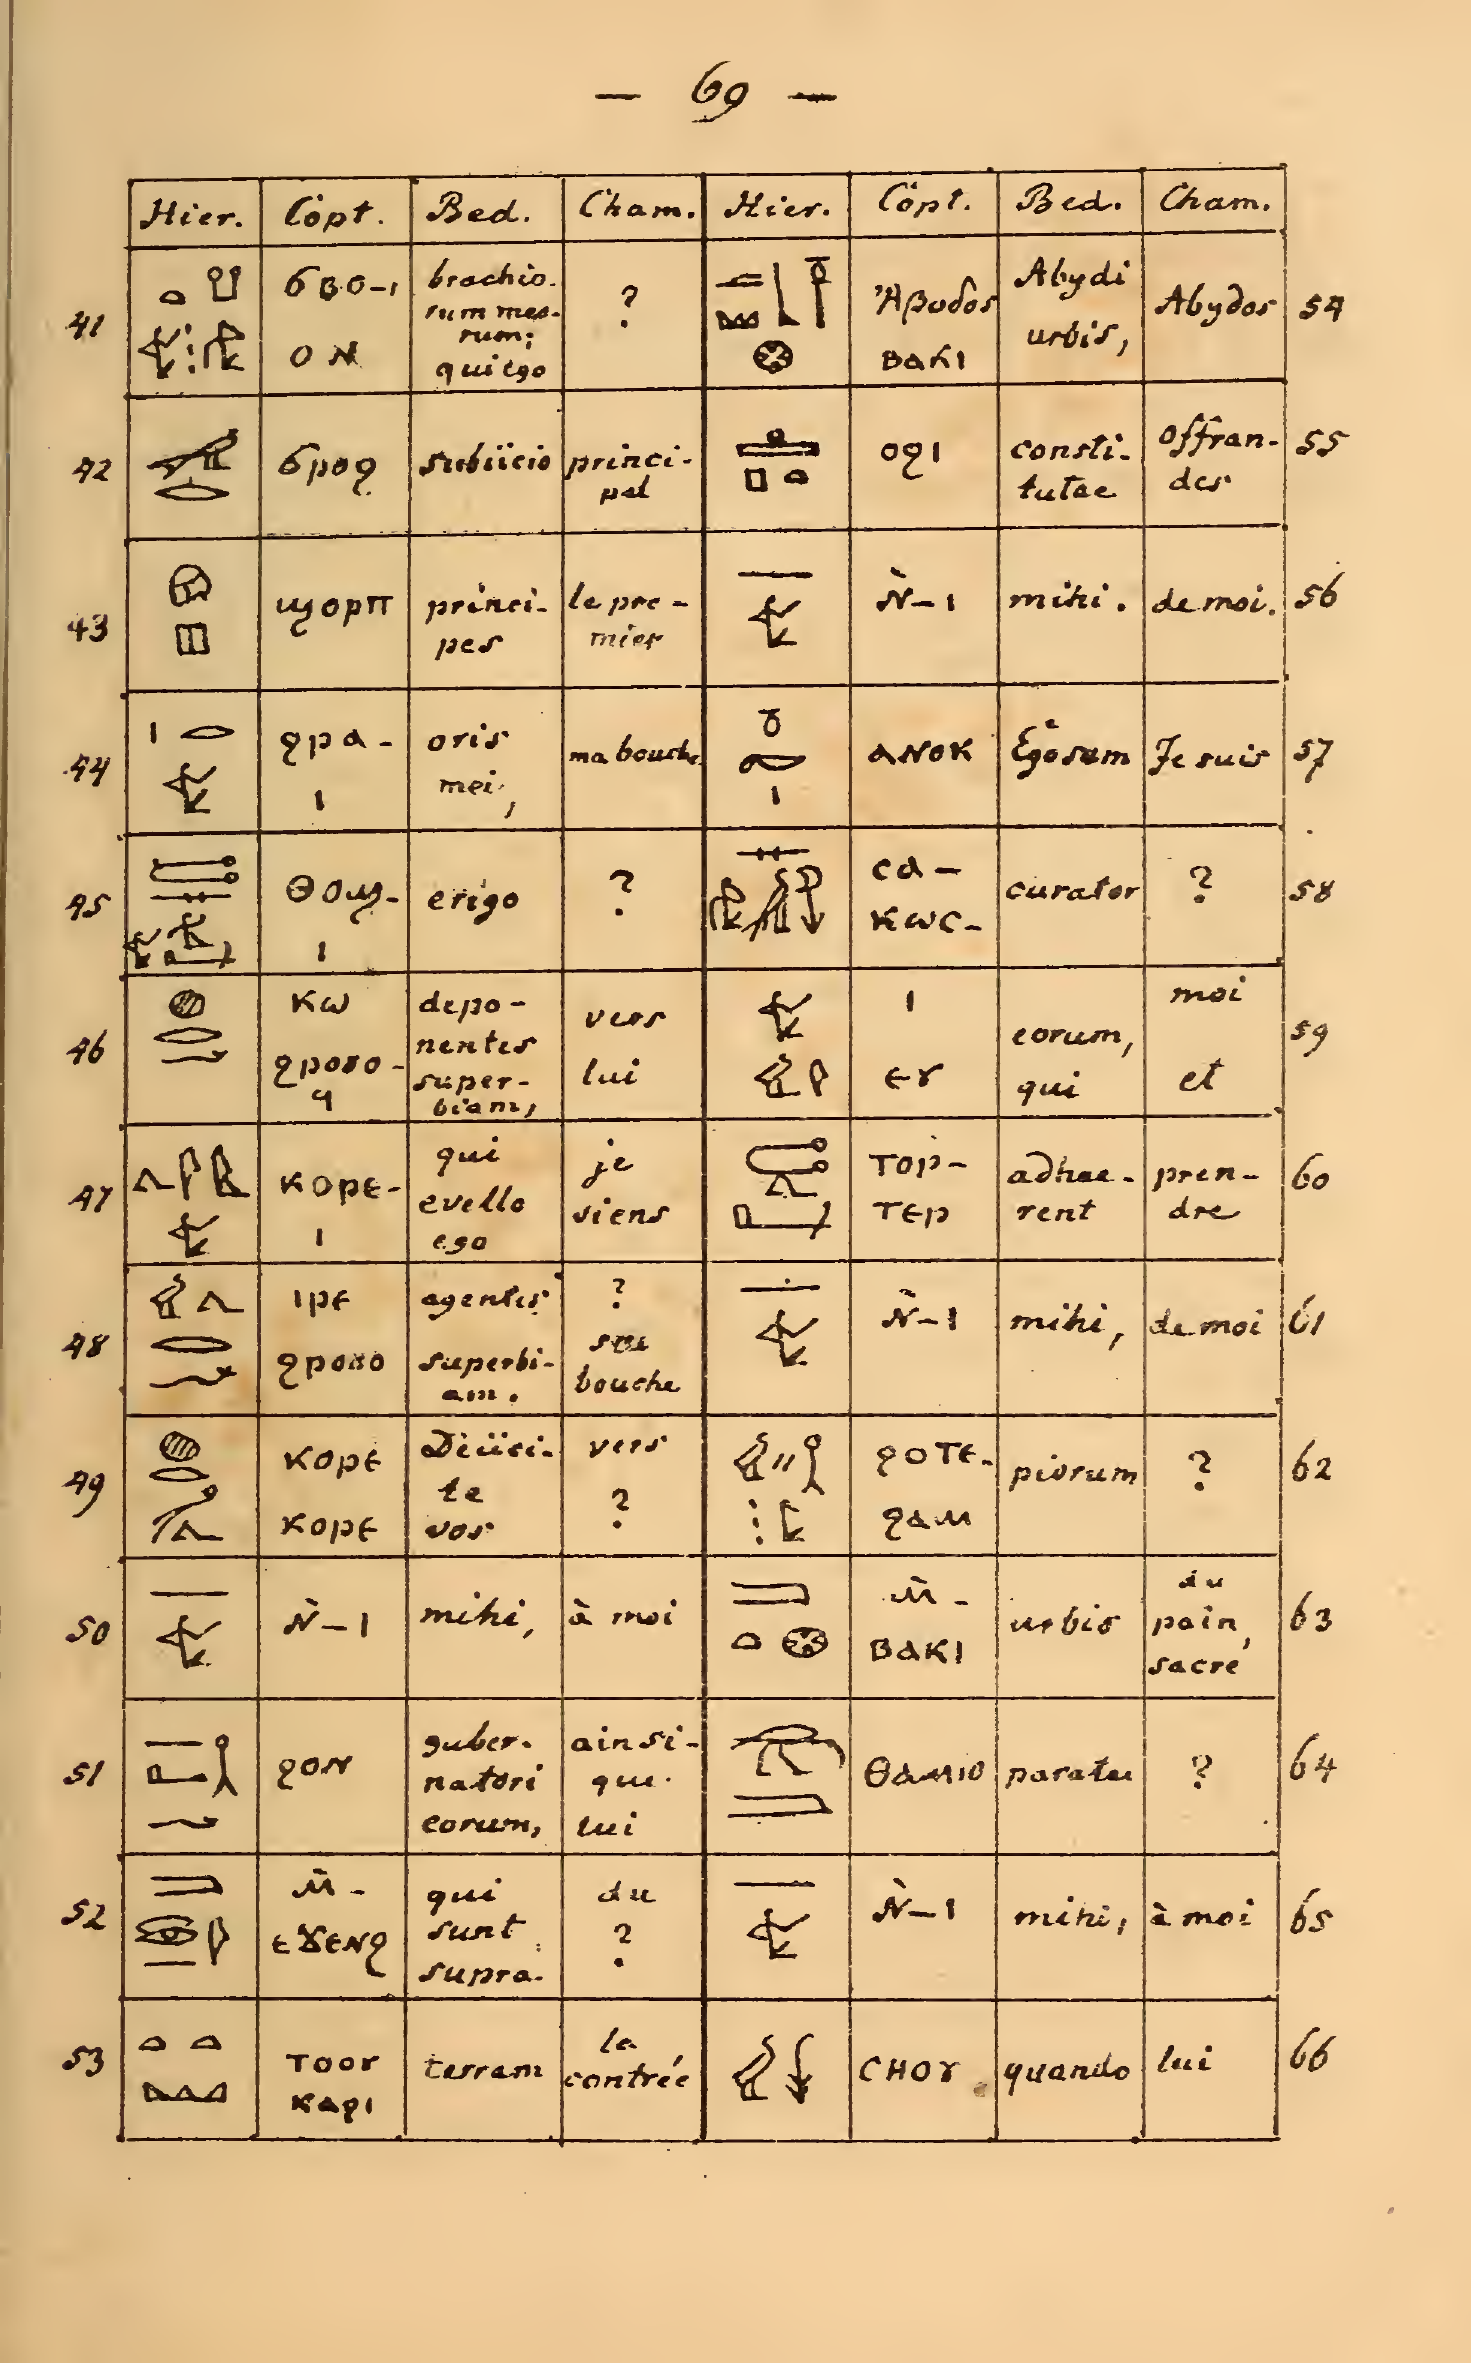 — 69 —
Hier. Copt. Bed. Cham. Hier. Copt. Bed. Cham.
41 ϭⲃⲟ-ⲓ ⲟⲛ brachio-
rum meo-
rum;
qui ego ? Ἀβυδος
ⲃⲁⲕⲓ Abydi
urbis, Abydos 54
42 ϭⲣⲟϩ subiicio princi-
pal ⲟϩⲓ consti-
tutae offran-
des 55
43 ϣⲟⲣⲡ princi-
pes le pre-
mier Ⲛ̀-ⲓ mihi. de moi. 56
44 ϩⲣⲁ-
ⲓ oris
mei, ma bouche ⲁⲛⲟⲕ Ego sum Je suis 57
45 ⲑⲟϣ-
ⲓ erigo ? ⲥⲁ-
ⲕⲱⲥ- curator ? 58
46 ⲕⲱ
ϩⲣⲟⲩⲟ-
ϥ depo-
nentes
super-
biam, vers
lui ⲓ
ⲉⲩ eorum,
qui moi
et 59
47 ⲕⲟⲣⲉ-
ⲓ qui
evello
ego je
viens ⲧⲟⲣ-
ⲧⲉⲣ adhae-
rent pren-
dre 60
48 ⲓⲣⲉ
ϩⲣⲟⲩⲟ agentes
superbi-
am. ?
sa
bouche Ⲛ̀-ⲓ mihi, de moi 61
49 ⲕⲟⲣⲉ
ⲕⲟⲣⲉ Deiici-
te
vos vers
? ϩⲟⲧⲉ-
ϩⲁⲙ piorum ? 62
50 Ⲛ̀-ⲓ mihi, à moi Ⲙ̀-
ⲃⲁⲕⲓ urbis du
pain
sacré 63
51 ϩⲟⲛ guber-
natori
eorum, ainsi-
que
lui ⲑⲁⲙⲓⲟ paratu ? 64
52 Ⲙ̀-
qui
sunt
supra- du
? Ⲛ̀-ⲓ mihi, à moi 65
53 ⲧⲟⲟⲩ
ⲕⲁϩⲓ terram la
contrée ⲥⲏⲟⲩ quando lui 66